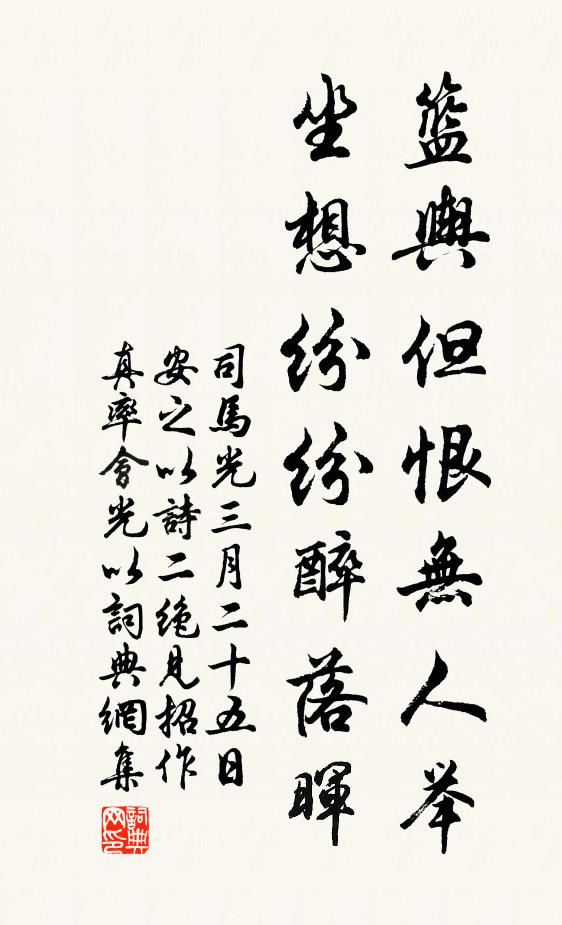 籃輿但恨無人举
坐想紛紛醉落暉
司馬光三月二十五日
安之以詩二绝見招作
真率會光以詞典網集
詞典
网印